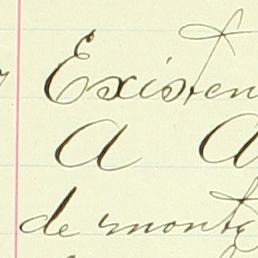 Existen
a a
de monte